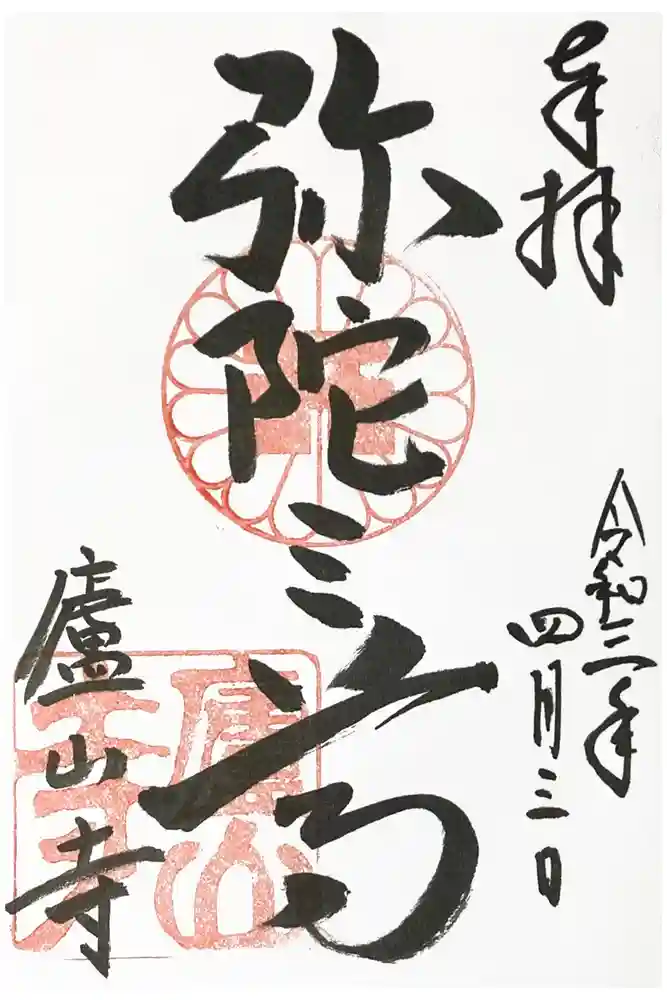 奉拝
令和三年
四月三日
弥陀三尊
廬山寺